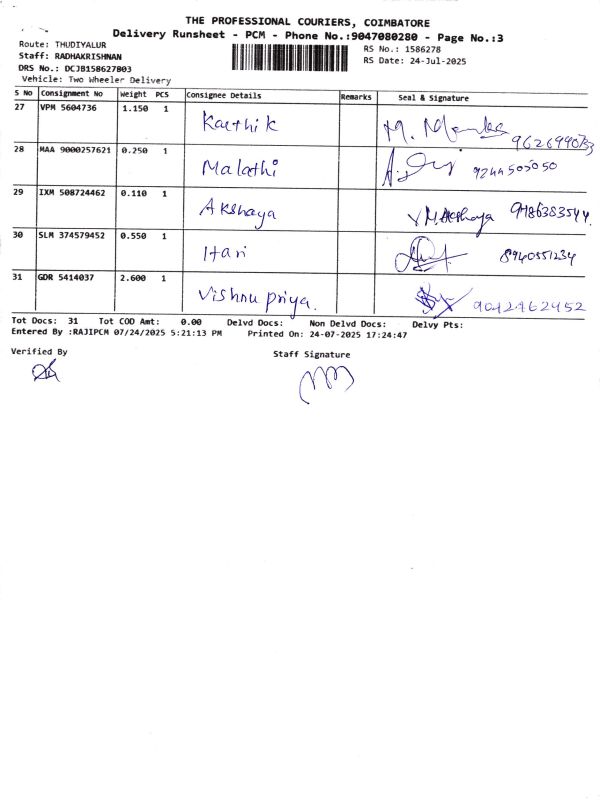 THE PROFESSIONAL COURIERS, COIMBATORE
Delivery Runsheet - PCM - Phone No.:9047080280 - Page No.:3
Route: THUDIYALUR RS No.: 1586278
Staff: RADHAKRISHNAN RS Date: 24-Jul-2025
DRS No.: DCJB158627803
Vehicle: Two Wheeler Delivery
S No Consignment No Weight PCS Consignee Details Remarks Seal & Signature
27 VPM 5604736 1.150 1
Karthik M. 
28 MAA 9000257621 0.250 1
Malathi
29 IXM 508724462 0.110 1
Akshaya V.M.Akshaya
30 SLM 374579452 0.550 1
Hari 8940551234
31 GDR 5414037 2.600 1
Vishnu priya. 9042462452
Tot Docs: 31 Tot COD Amt: 0.00 Delvd Docs: Non Delvd Docs: Delvy Pts:
Entered By :RAJIPCM 07/24/2025 5:21:13 PM Printed On: 24-07-2025 17:24:47
Verified By Staff Signature